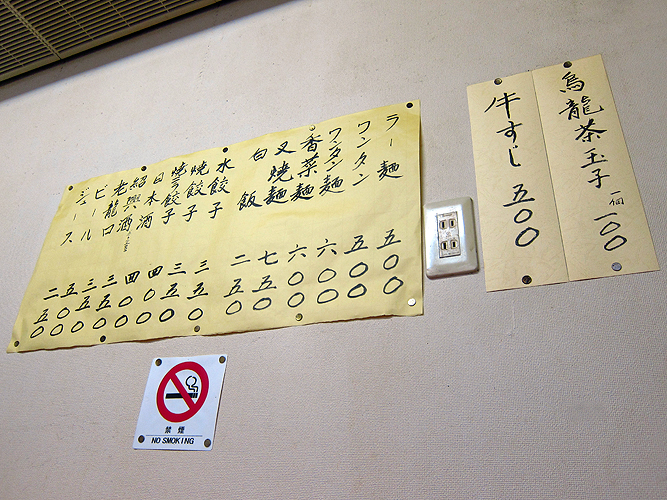 烏龍茶玉子 一個 一〇〇
牛すじ 五〇〇
ラー麺 五〇〇
ワンタン 五〇〇
ワンタン麺 六〇〇
香菜麺 六〇〇
叉焼麺 七五〇
白飯 二五〇
水餃子 三五〇
焼餃子 三五〇
餃子 四〇〇
日本酒 四〇〇
紹興酒 三五〇
老龍口 三五〇
ビール 五〇〇
ジュース 二五〇
禁煙
NO SMOKING